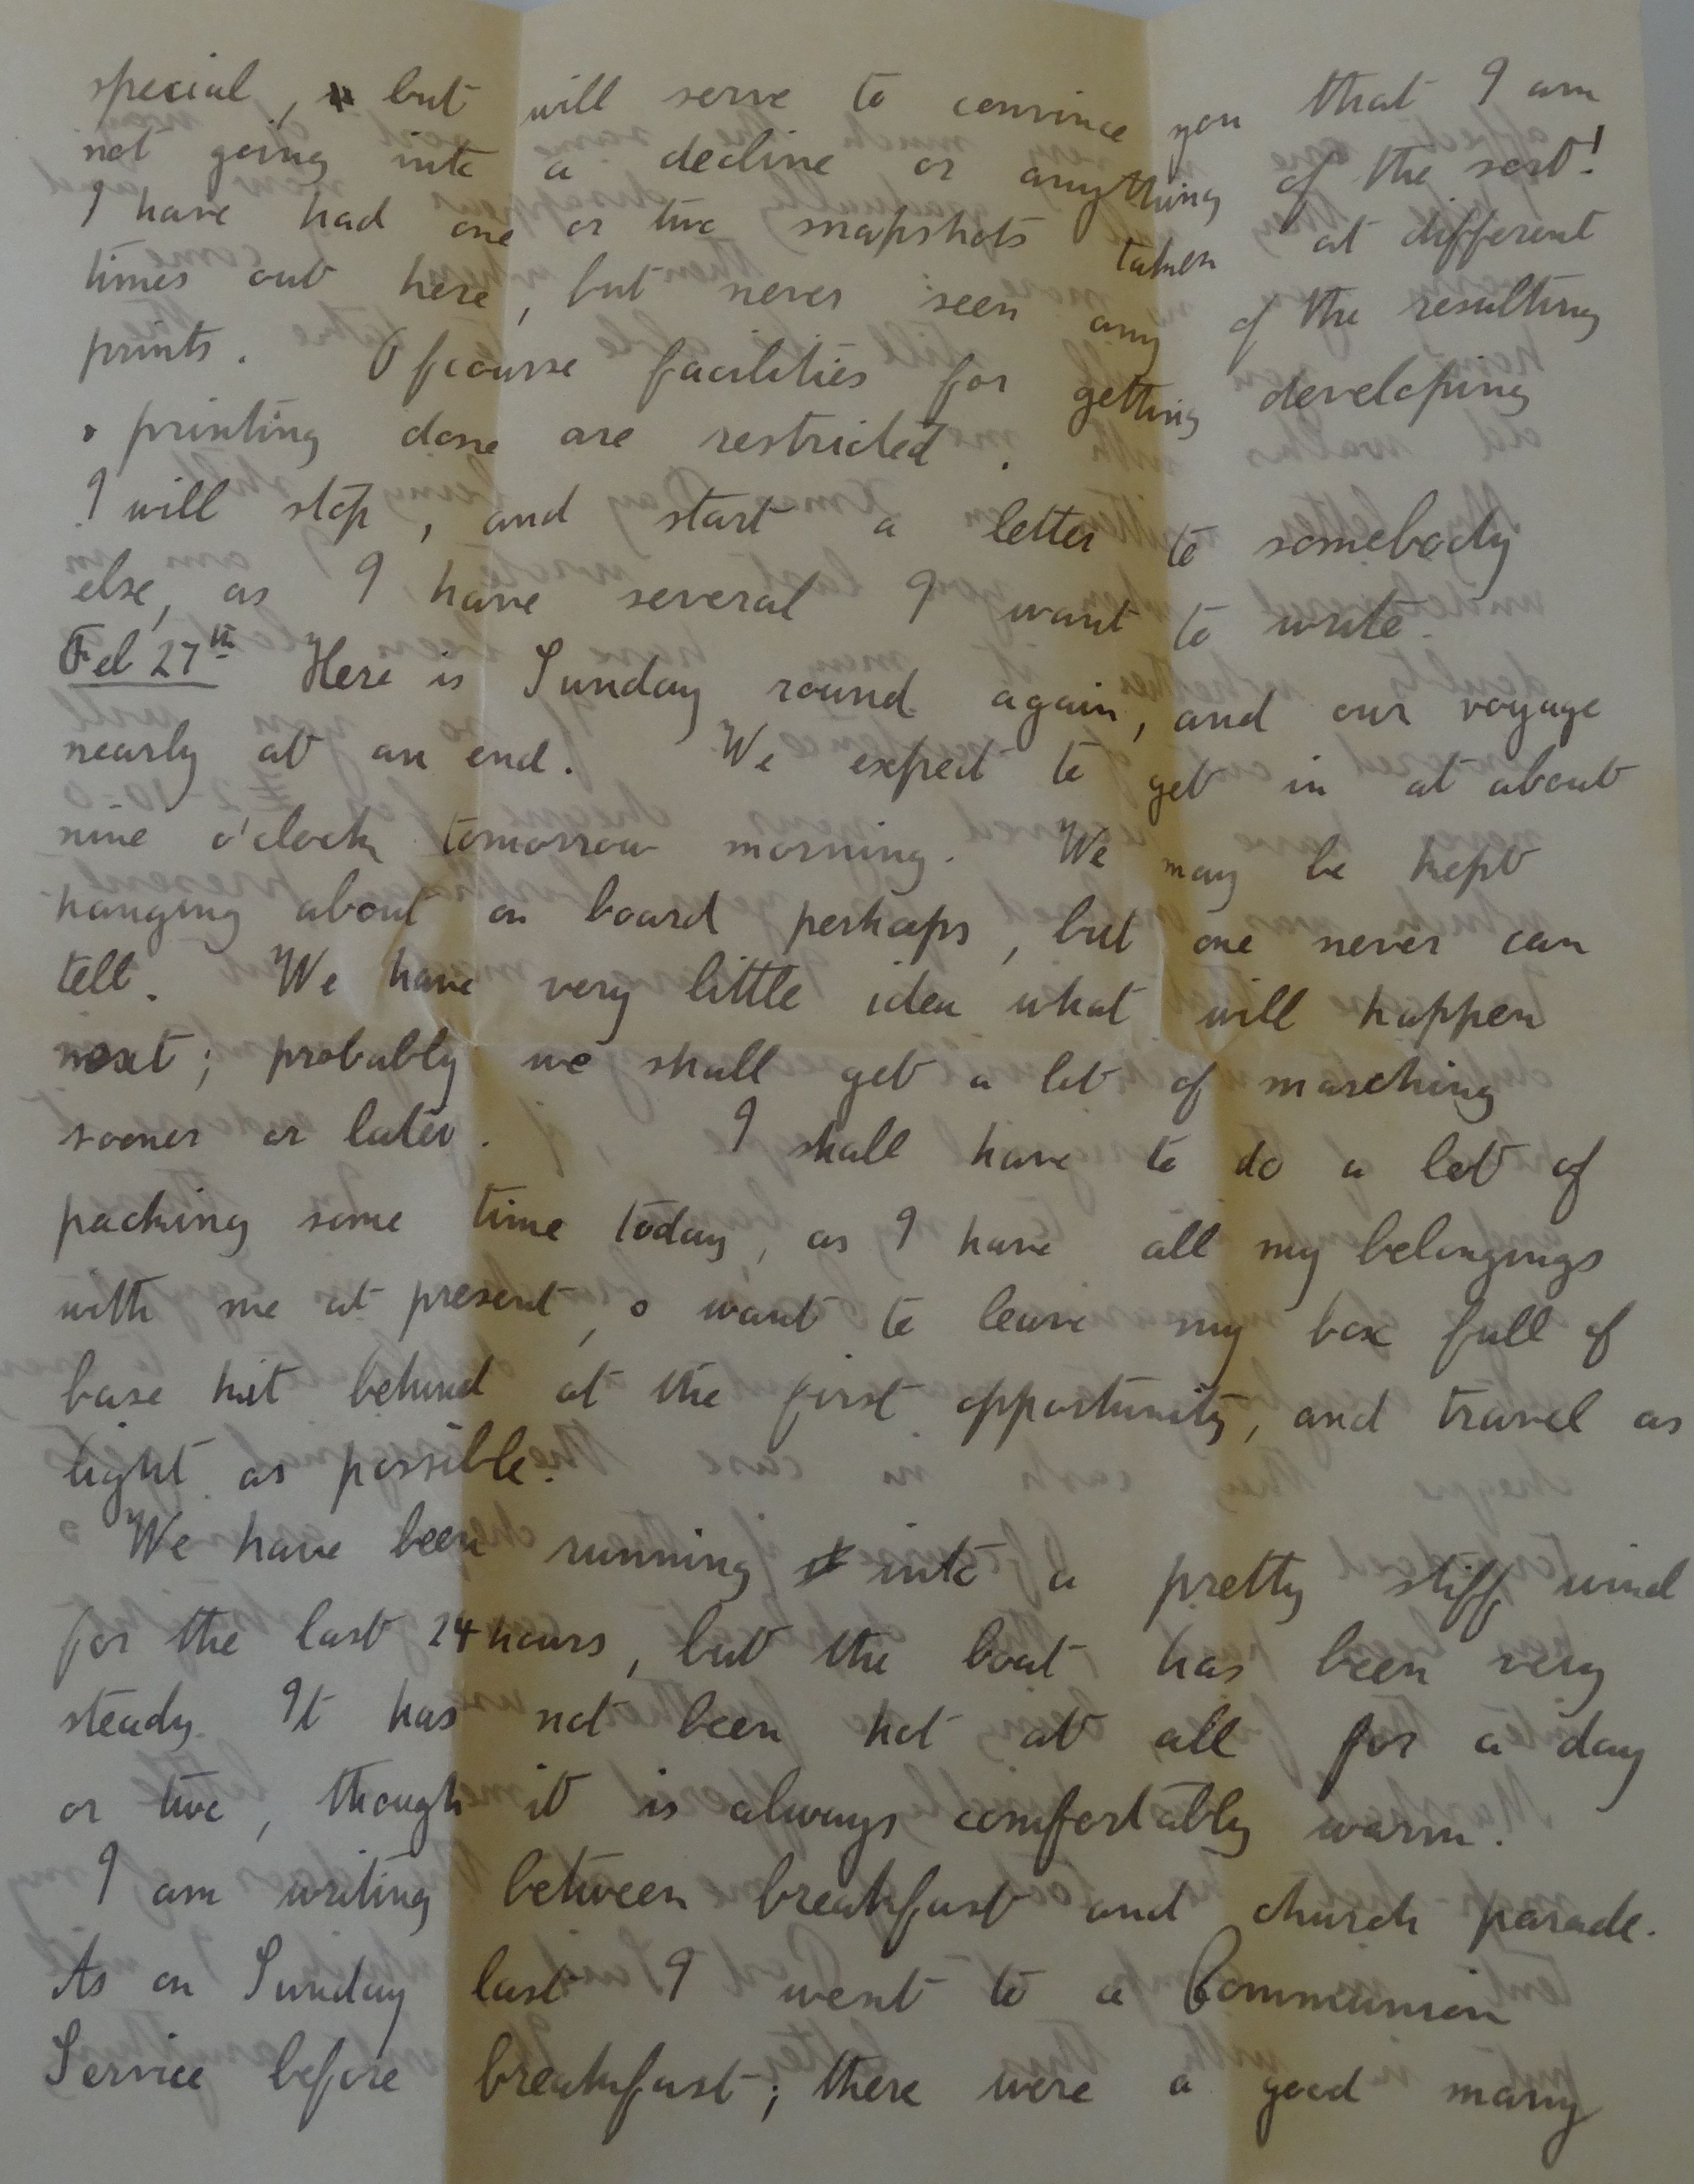 special, but will serve to convince you that I am
not going into a decline or anything of the sort!
I have had one or two snapshots taken at different
times out here, but never seen any of the resulting
prints. Of course facilities for getting developing
& printing done are restricted.
I will stop, and start a letter to somebody
else, as I have several I want to write.
Feb 27th Here is Sunday round again, and our voyage
nearly at an end. We expect to get in at about
nine o'clock tomorrow morning. We may be kept
hanging about on board perhaps, but one never can
tell. We have very little idea what will happen
next; probably we shall get a lot of marching
sooner or later. I shall have to do a lot of
packing some time today, as I have all my belongings
with me at present, & want to leave my box full of
base kit behind at the first opportunity, and travel as
light as possible.
We have been running into a pretty stiff wind
for the last 24 hours, but the boat has been very
steady. It has not been hot at all for a day
or two, though it is always comfortably warm.
I am writing between breakfast and church parade.
As on Sunday last I went to a Communion
Service before breakfast; there were a good many